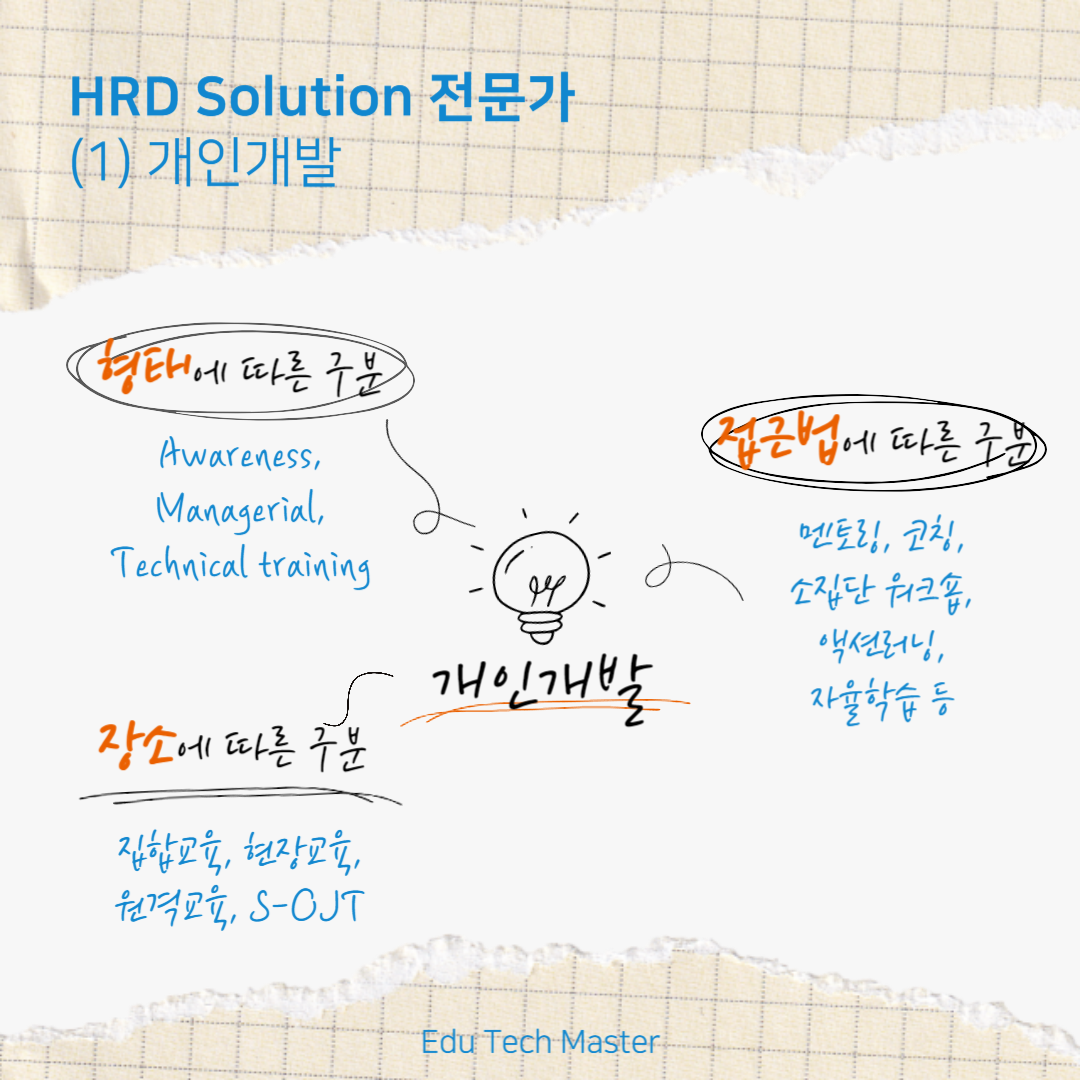 HRD Solution 전문가
(1) 개인개발
형태에 따른 구분
Awareness,
Managerial,
Technical training
접근법에 따른 구분
멘토링, 코칭,
소집단 워크숍,
액션러닝,
자율학습 등
개인개발
장소에 따른 구분
집합교육, 현장교육,
원격교육, S-OJT
Edu Tech Master